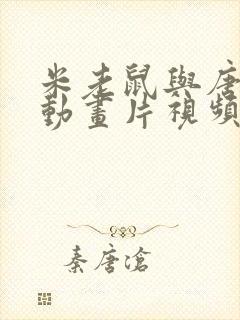 米老鼠與唐
動畫片視頻
秦唐滄